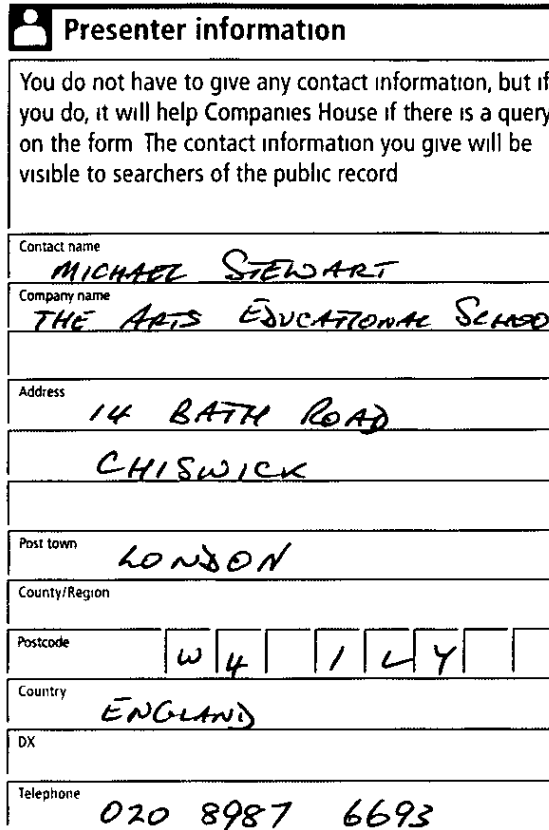 Presenter information
You do not have to give any contact information, but if
you do, it will help Companies House if there is a query
on the form The contact information you give will be
visible to searchers of the public record
Contact name
MICHAEL STEWART
Company name
THE ARTS EDUCATIONAL SCHOO
Address
14 BATH ROAD
CHISWICK
Post town
LONDON
County/Region
Postcode
W4 1LY
Country
ENGLAND
DX
Telephone
020 8987 6693